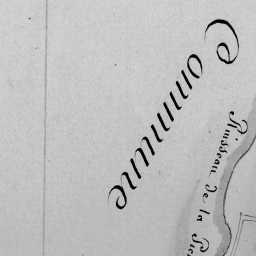 Commune
Ruisseau de la